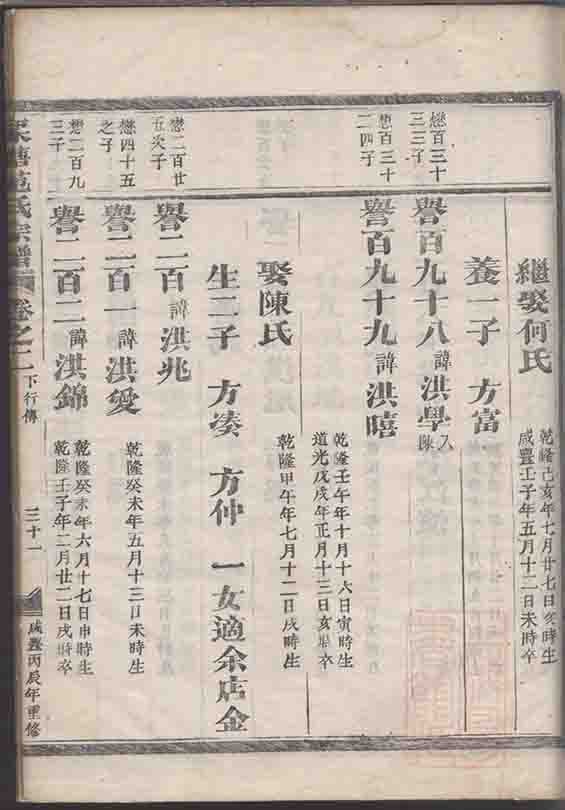 繼娶何氏
乾隆己亥年七月廿七日亥時生
咸豐壬子年五月十二日未時卒
養一子 方富
懋百三十
三三子
譽百九十八諱洪學入陳
懋百三十
二四子
譽百九十九諱洪暿
乾隆壬午年十月十六日寅時生
道光戊戌年正月十三日亥時卒
娶陳氏
乾隆甲午年七月十二日戌時生
生二子 方凑 方仲 一女適余店金
懋二百廿
五次子
譽二百諱洪兆
懋四十五
之子
譽二百一諱洪愛
乾隆癸未年五月十三日未時生
懋二百九
三子
譽二百二諱洪錦
乾隆癸未年六月十七日申時生
乾隆壬子年二月廿二日戌時卒
塘范氏宗譜 卷之二 下行傳 三十一 咸豐丙辰年重修